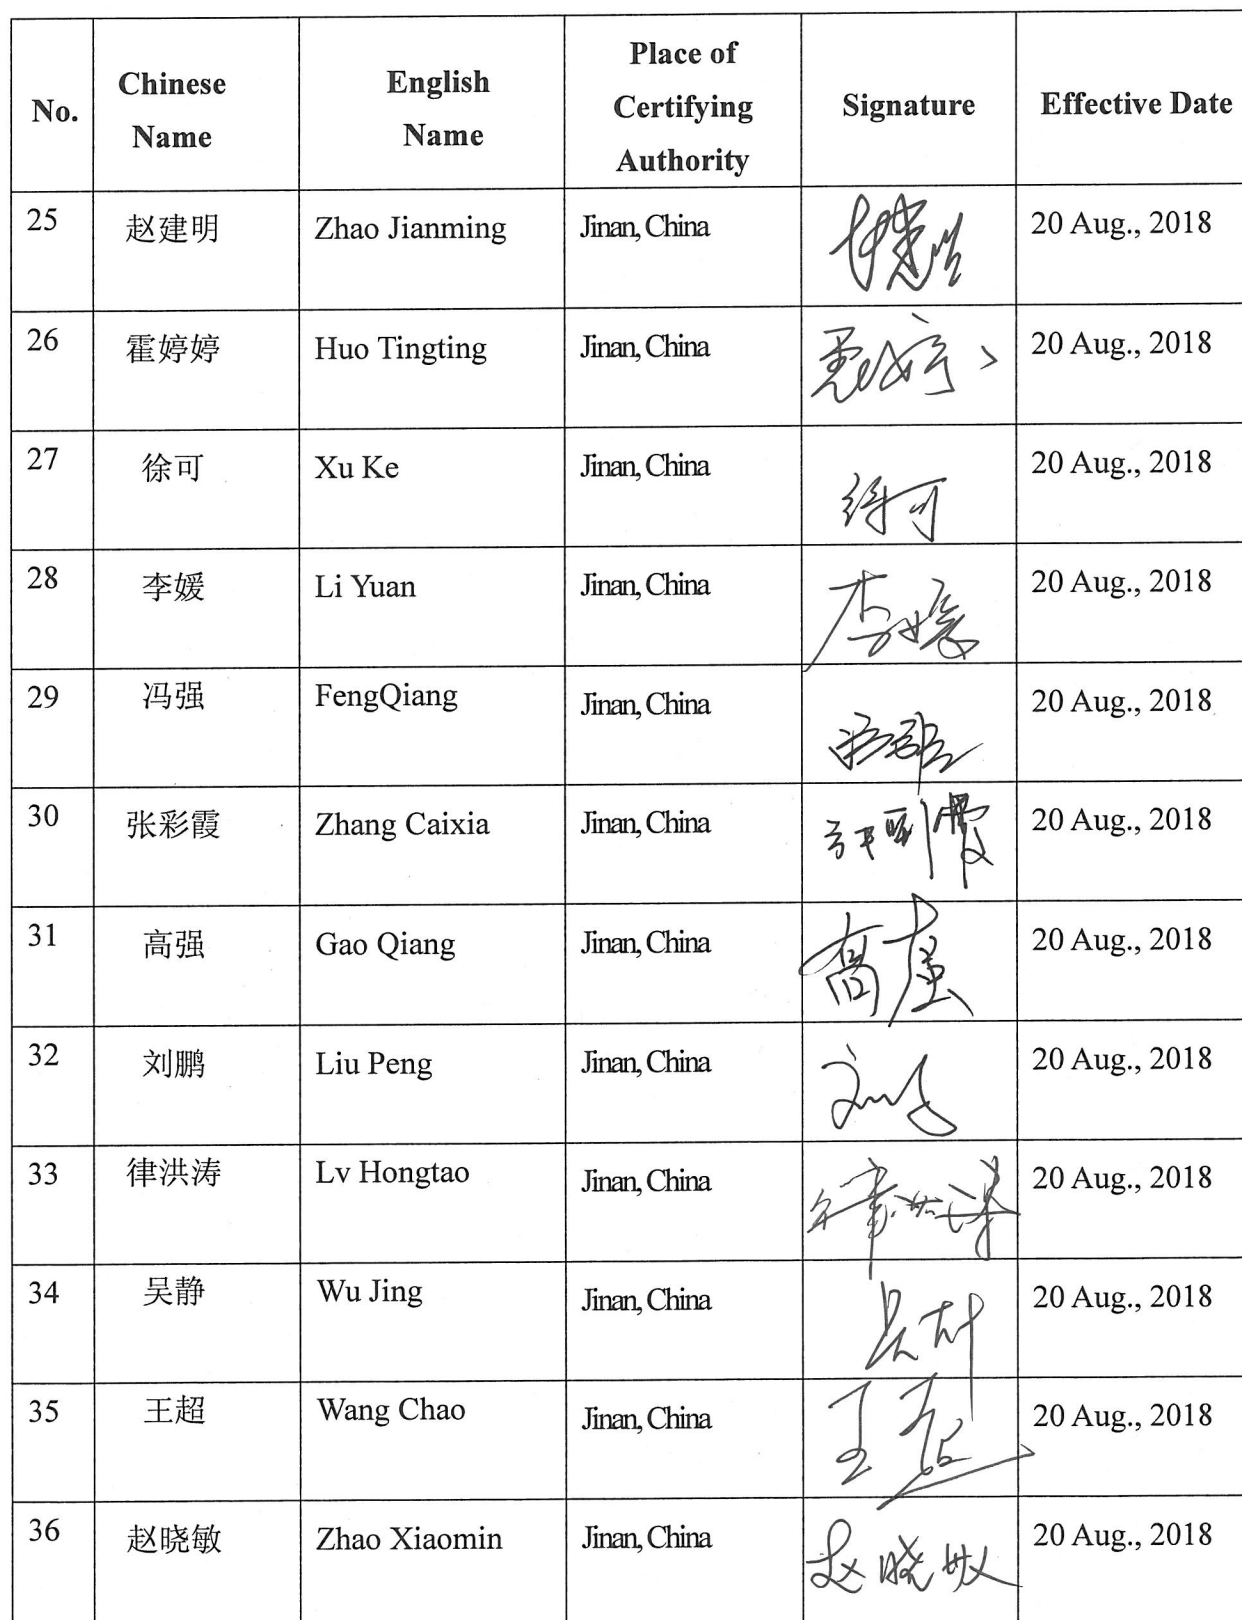 No. Chinese Name English Name Place of Certifying Authority Signature Effective Date
25 赵建明 Zhao Jianming Jinan, China 20 Aug., 2018
26 霍婷婷 Huo Tingting Jinan, China 20 Aug., 2018
27 徐可 Xu Ke Jinan, China 徐可 20 Aug., 2018
28 李媛 Li Yuan Jinan, China 李媛 20 Aug., 2018
29 冯强 FengQiang Jinan, China 20 Aug., 2018
30 张彩霞 Zhang Caixia Jinan, China 20 Aug., 2018
31 高强 Gao Qiang Jinan, China 高强 20 Aug., 2018
32 刘鹏 Liu Peng Jinan, China 20 Aug., 2018
33 律洪涛 Lv Hongtao Jinan, China 20 Aug., 2018
34 吴静 Wu Jing Jinan, China 20 Aug., 2018
35 王超 Wang Chao Jinan, China 王超 20 Aug., 2018
36 赵晓敏 Zhao Xiaomin Jinan, China 赵晓敏 20 Aug., 2018